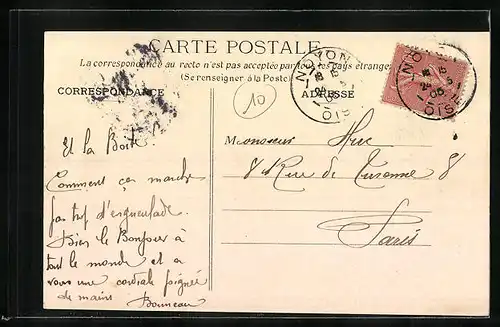 CARTE POSTALE
La correspondance au recto n'est pas acceptée par tous les pays étrangers
(Se renseigner à la Poste)
CORRESPONDANCE
ADRESSE
10
NOYON
OISE
Et la Boite.
Comment ça marche
pas trop d'engueulade.
Bien le Bonjour à
tout le monde et a
vous une cordiale poignée
de mains Bonneau
Monsieur Huc
8 Rue de Turenne 8
Paris
OISE